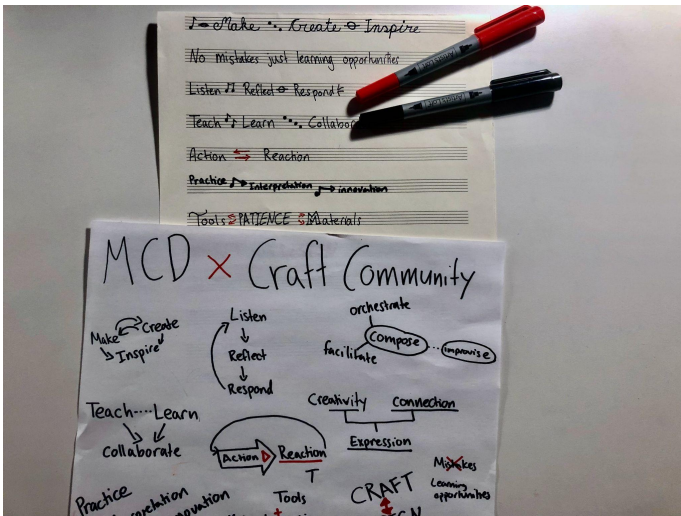 Make Create Inspire
No mistakes just learning opportunities
Listen Reflect Respond
Teach Learn
Action ⇆ Reaction
Practice → Interpretation → innovation
Tools PATIENCE Materials
MCD x Craft Community
Make Create
Inspire
Listen
Reflect
Respond
orchestrate
facilitate
Compose
improvise
Teach Learn
Collaborate
Creativity Connection
Expression
Action Reaction
T
Mistakes
Learning
opportunities
Practice
Tools
CRAFT